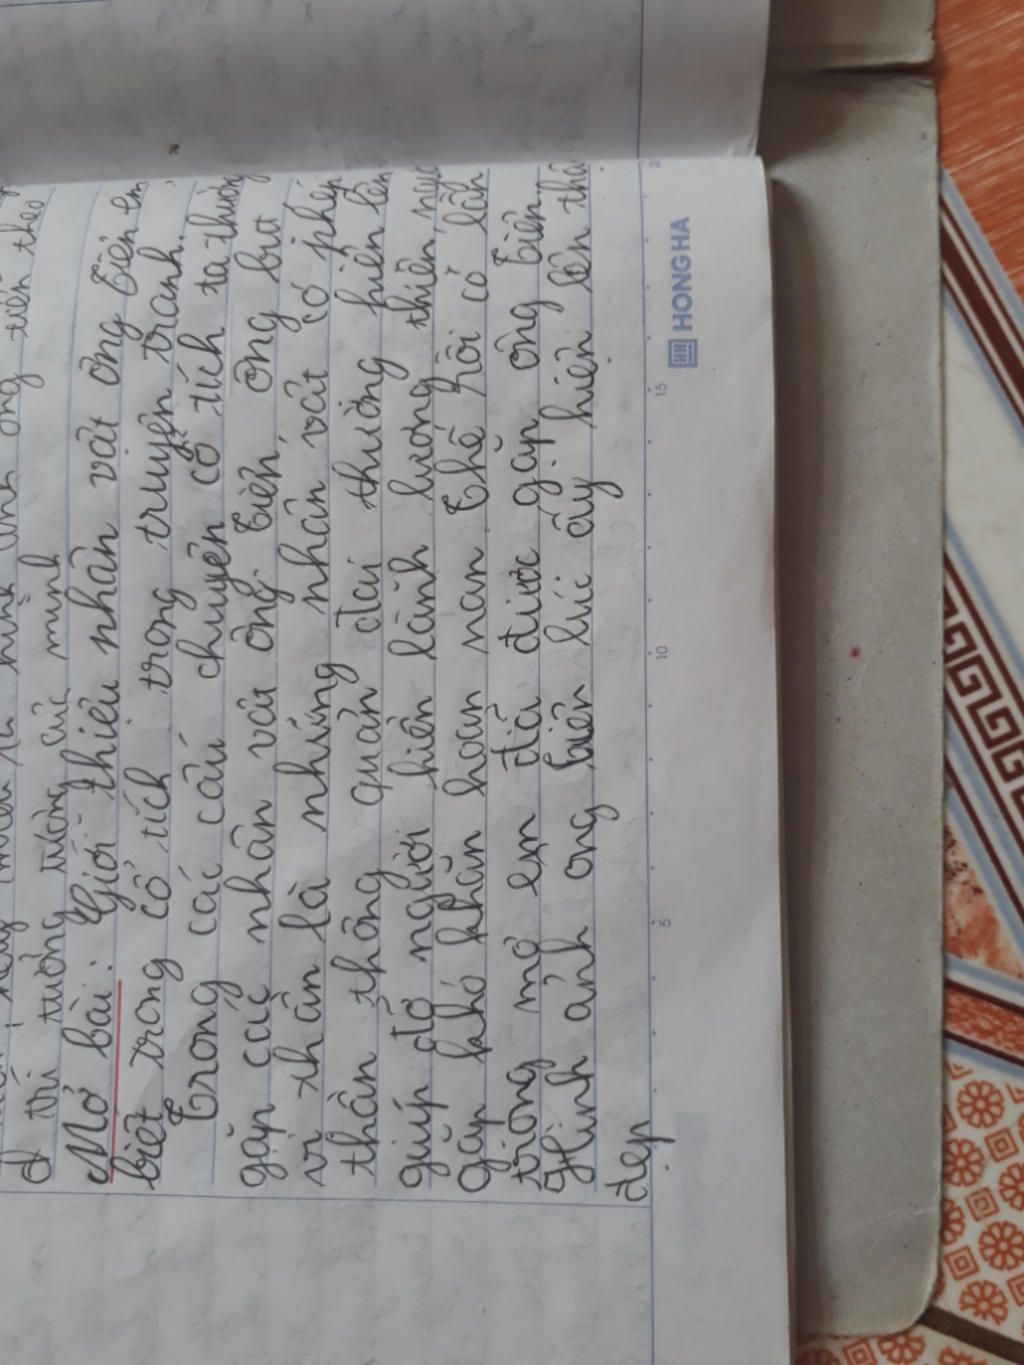 trí tưởng tượng của mình
Mở bài: Giới thiệu nhân vật ông tiên em
biết trong cổ tích trong truyện tranh.
Trong các câu chuyện cổ tích ta thường
gặp các nhân vật ông tiên, ông bụt
vị thần là những nhân vật có phép
thần thông quản đại thường hiển lên
giúp đỡ người hiền lành lương thiện,
gặp khó khăn hoạn nạn. Thế rồi có lần
trong mơ em đã được gặp ông tiên.
Hình ảnh ong tiên lúc ấy hiện lên thâ
đẹp
5
10
15
HONG HA